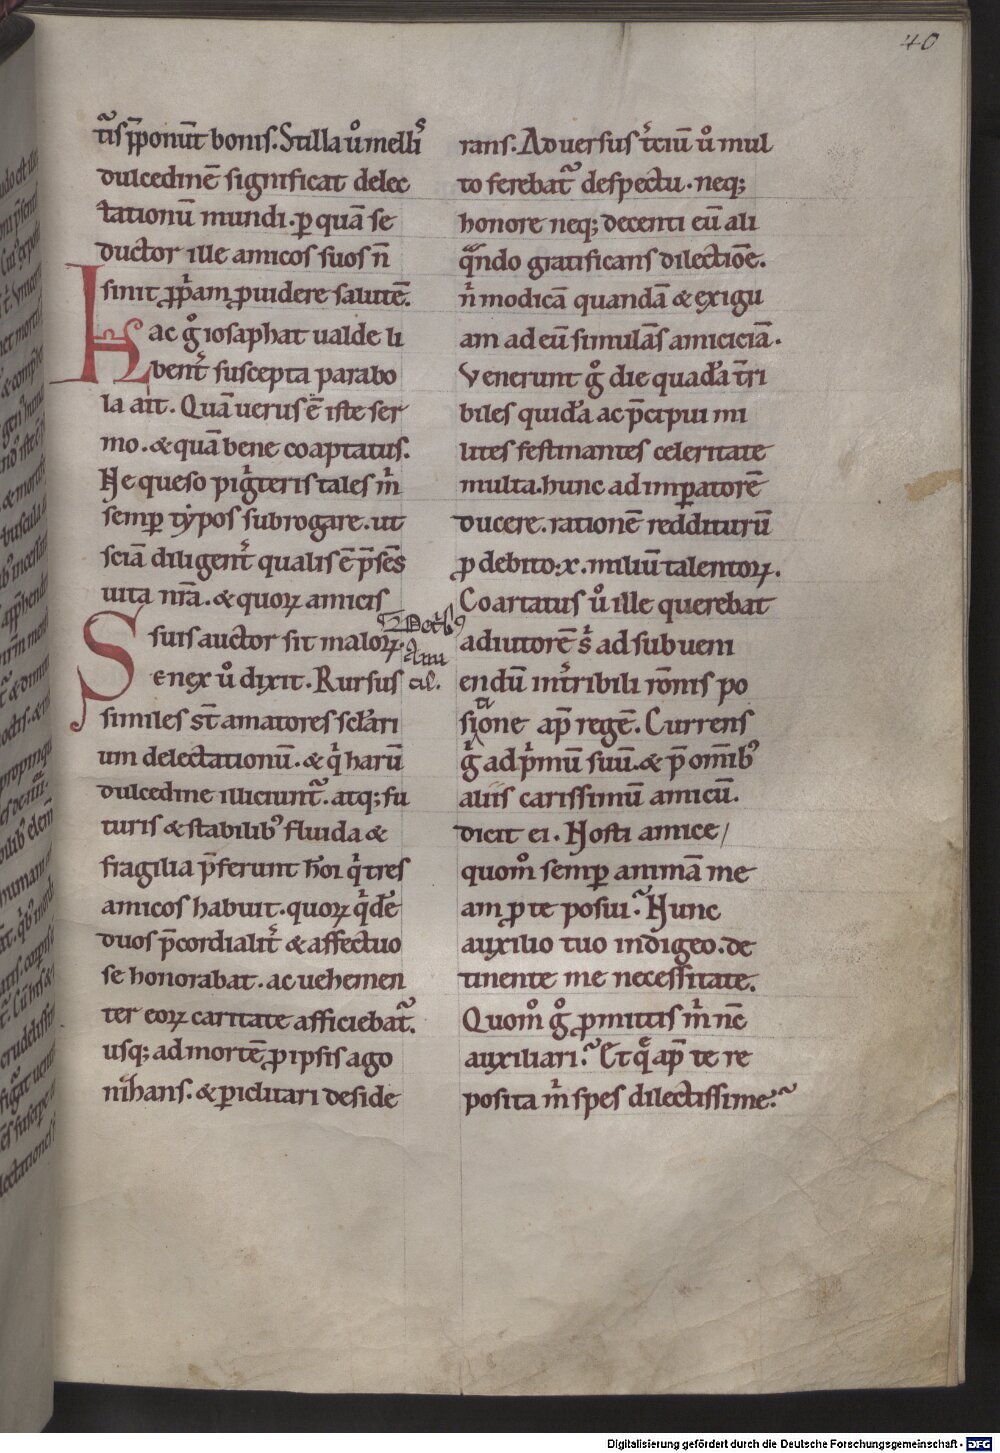 40
tĩs p̄ponūt bonis. Stilla ů mellis
dulcedinē significat delec
tationū mundi. ꝑ quā se
ductor ille amicos suos n̄
sinit ꝓp̄am ꝓuidere salutē.
Hac g̊ iosaphat ualde li
bent᷑ suscepta parabo
la ait. Quā uerus ē iste ser
mo. & quā bene coaptatus.
Ne queso pig̍teris tales m̍
semꝑ typos subrogare. ut
sciā diligent᷑ qualis ē p̄sēs
uita nr̄a. & quoꝝ amicis
suis auctor sit maloꝝ.
De trib᷒
ami
cis.
Senex ů dixit. Rursus
similes st̄ amatores sclari
um delectationū. & q̍ harū
dulcedine illiciunt᷑. atq; fu
turis & stabilib᷒ fluida &
fragilia p̄ferunt hoī q̍ tres
amicos habuit. quoꝝ q̍dē
duos p̄cordialit᷑ & affectuo
se honorabat. ac uehemen
ter eoꝝ caritate afficiebat᷑.
usq; ad mortē ꝓ ipsis ago
nihans. & ꝑiclitari deside
rans. Aduersus t̍ciū ů mul
to ferebat᷑ despectu. neq;
honore neq; decenti eū ali
qᷓndo gratificans dilectiōe.
n̍ modicā quandā & exigu
am ad eū simulās amiciciā.
Venerunt g̊ die quadā t̄ri
biles quidā ac p̄cipui mi
lites festinantes celeritate
multa. hunc ad imꝑatorē
ducere. rationē redditurū
ꝓ debito .x. miliū talentoꝝ.
Coartatus ů ille querebat
adiutorē s̍ ad subueni
endū int᷑ribili rōnis po
sitione ap̄ regē. Currens
g̍ ad p̍mū suū. & p̄ om̄ib᷒
aliis carissimū amicū.
dicit ei. Nosti amice/
quom̊ semꝑ animā me
am ꝓ te posui. Nunc
auxilio tuo indigeo. de
tinente me necessitate.
Quom̊ g̊ ꝓmittis m̍ nc̄
auxiliari? Et q̄ ap̄ te re
posita m̍ spes dilectissime?
Digitalisierung gefördert durch die Deutsche Forschungsgemeinschaft - DFG